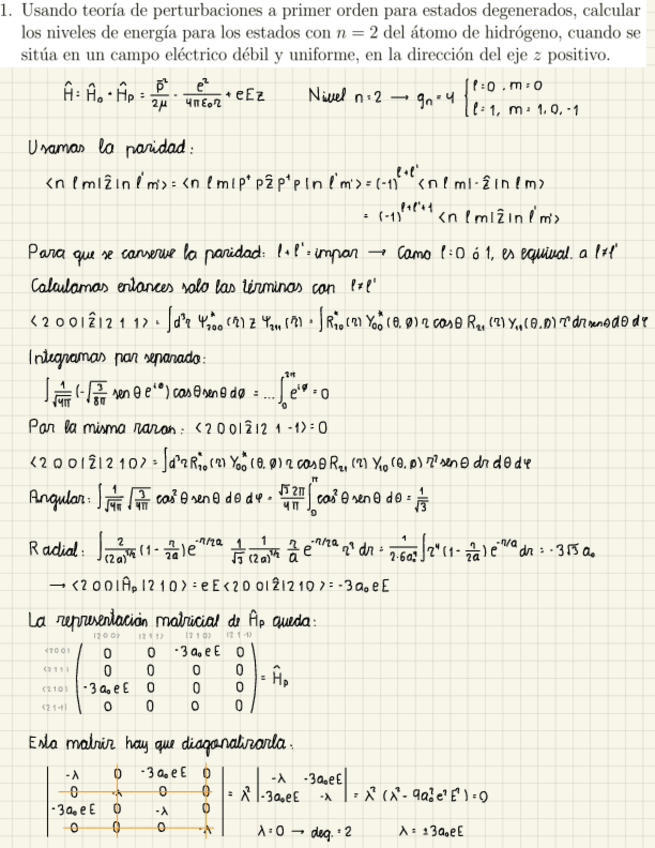 1. Usando teoría de perturbaciones a primer orden para estados degenerados, calcular
los niveles de energía para los estados con n = 2 del átomo de hidrógeno, cuando se
sitúa en un campo eléctrico débil y uniforme, en la dirección del eje z positivo.
Ĥ = Ĥ₀ + Ĥp = p̄²/2μ - e²/4πε₀r + eEz    Nivel n=2 → gn=4 { l=0, m=0
l=1, m=1,0,-1
Usamos la paridad:
<n l m|ẑ|n l' m'> = <n l m|p⁺ p ẑ p⁺ p|n l' m'> = (-1)^(l+l') <n l m|-ẑ|n l m>
= (-1)^(l+l'+1) <n l m|ẑ|n l' m'>
Para que se conserve la paridad: l+l'=impar → Como l=0 ó 1, es equival. a l≠l'
Calculamos entonces solo los términos con l≠l'
<2 0 0|ẑ|2 1 1> = ∫d³r Ψ*₂₀₀(r̄) z Ψ₂₁₁(r̄) = ∫R*₂₀(r) Y₀₀*(θ,ø) r cosθ R₂₁(r) Y₁₁(θ,ø) r² dr senθ dθ dφ
Integramos por separado:
∫ 1/√4π (-√(3/8π) sen θ e^(iø)) cosθ senθ dø = ... ∫₀^2π e^(iø) = 0
Por la misma razon: <2 0 0|ẑ|2 1 -1> = 0
<2 0 0|ẑ|2 1 0> = ∫d³r R*₂₀(r) Y₀₀*(θ,ø) r cosθ R₂₁(r) Y₁₀(θ,ø) r² sen θ dr dθ dφ
Angular: ∫ 1/√4π √(3/4π) cos²θ senθ dθ dφ = √3 2π/4π ∫₀^π cos²θ senθ dθ = 1/√3
Radial: ∫ 2/(2a)^3/2 (1 - r/2a) e^(-r/2a) 1/√3 1/(2a)^3/2 r/a e^(-r/2a) r³ dr = 1/(2·6a₀⁴) ∫r⁴(1 - r/2a) e^(-r/a) dr = -3√3 a₀
→ <2 0 0|Ĥp|2 1 0> = eE<2 0 0|ẑ|2 1 0> = -3a₀eE
La representación matricial de Ĥp queda:
|2 0 0> |2 1 1> |2 1 0> |2 1 -1>
<200| 0 0 -3a₀eE 0
<211| 0 0 0 0 = Ĥp
<210| -3a₀eE 0 0 0
<21-1| 0 0 0 0
Esta matriz hay que diagonalizarla.
| -λ 0 -3a₀eE 0 |
| 0 -λ 0 0 | = λ² | -λ -3a₀eE | = λ²(λ² - 9a₀²e²E²) = 0
| -3a₀eE 0 -λ 0 | | -3a₀eE -λ |
| 0 0 0 -λ | λ=0 → deg. = 2    λ = ±3a₀eE